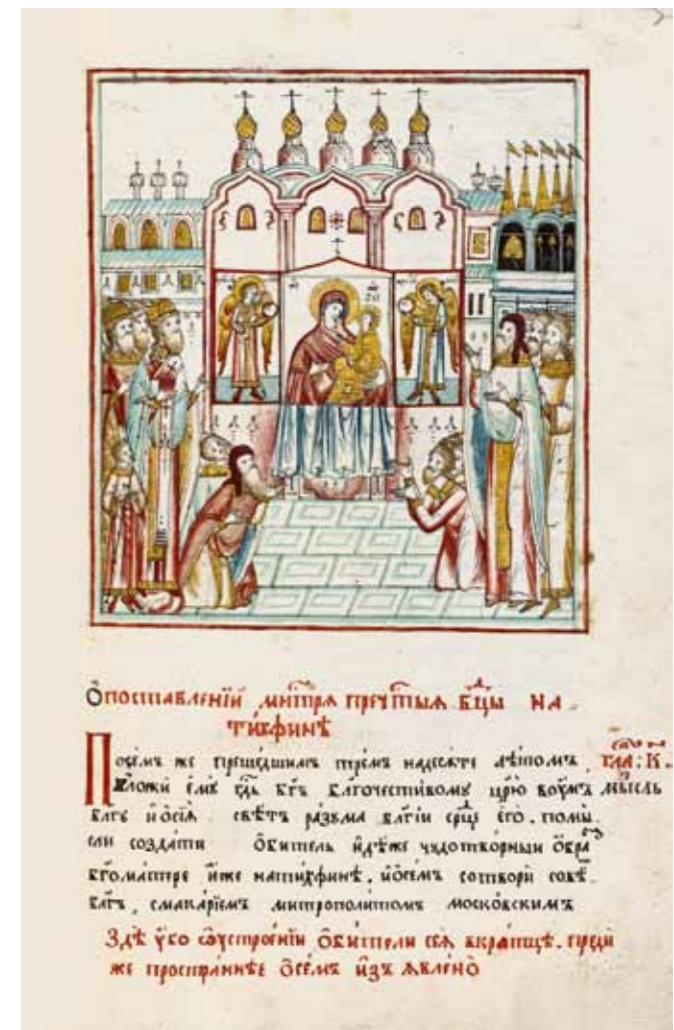 Ѻпоставленїй мнтрѧ пречтыѧ бцы на
тихфинѣ
Посемъ же прешедшимъ тремъ надесѧте лѣтомъ
вложи ему гдь бгъ благочестивому црю воумъ мысль
блгу йѻсїѧ свѣтъ разума блгїи срце его. помы
сли создати ѻбитель идѣже чудотворныи ѻбра
бгомтре йже натихфинѣ. йѻсемъ сотвори совѣ
благъ, смакарїемъ митрополитомъ московскимъ
Здѣ ꙋбо ѻустроенїи ѻбители сеѧ вкратцѣ. преди
же пространнѣе ѻсемъ изъѧвлено
гла: К